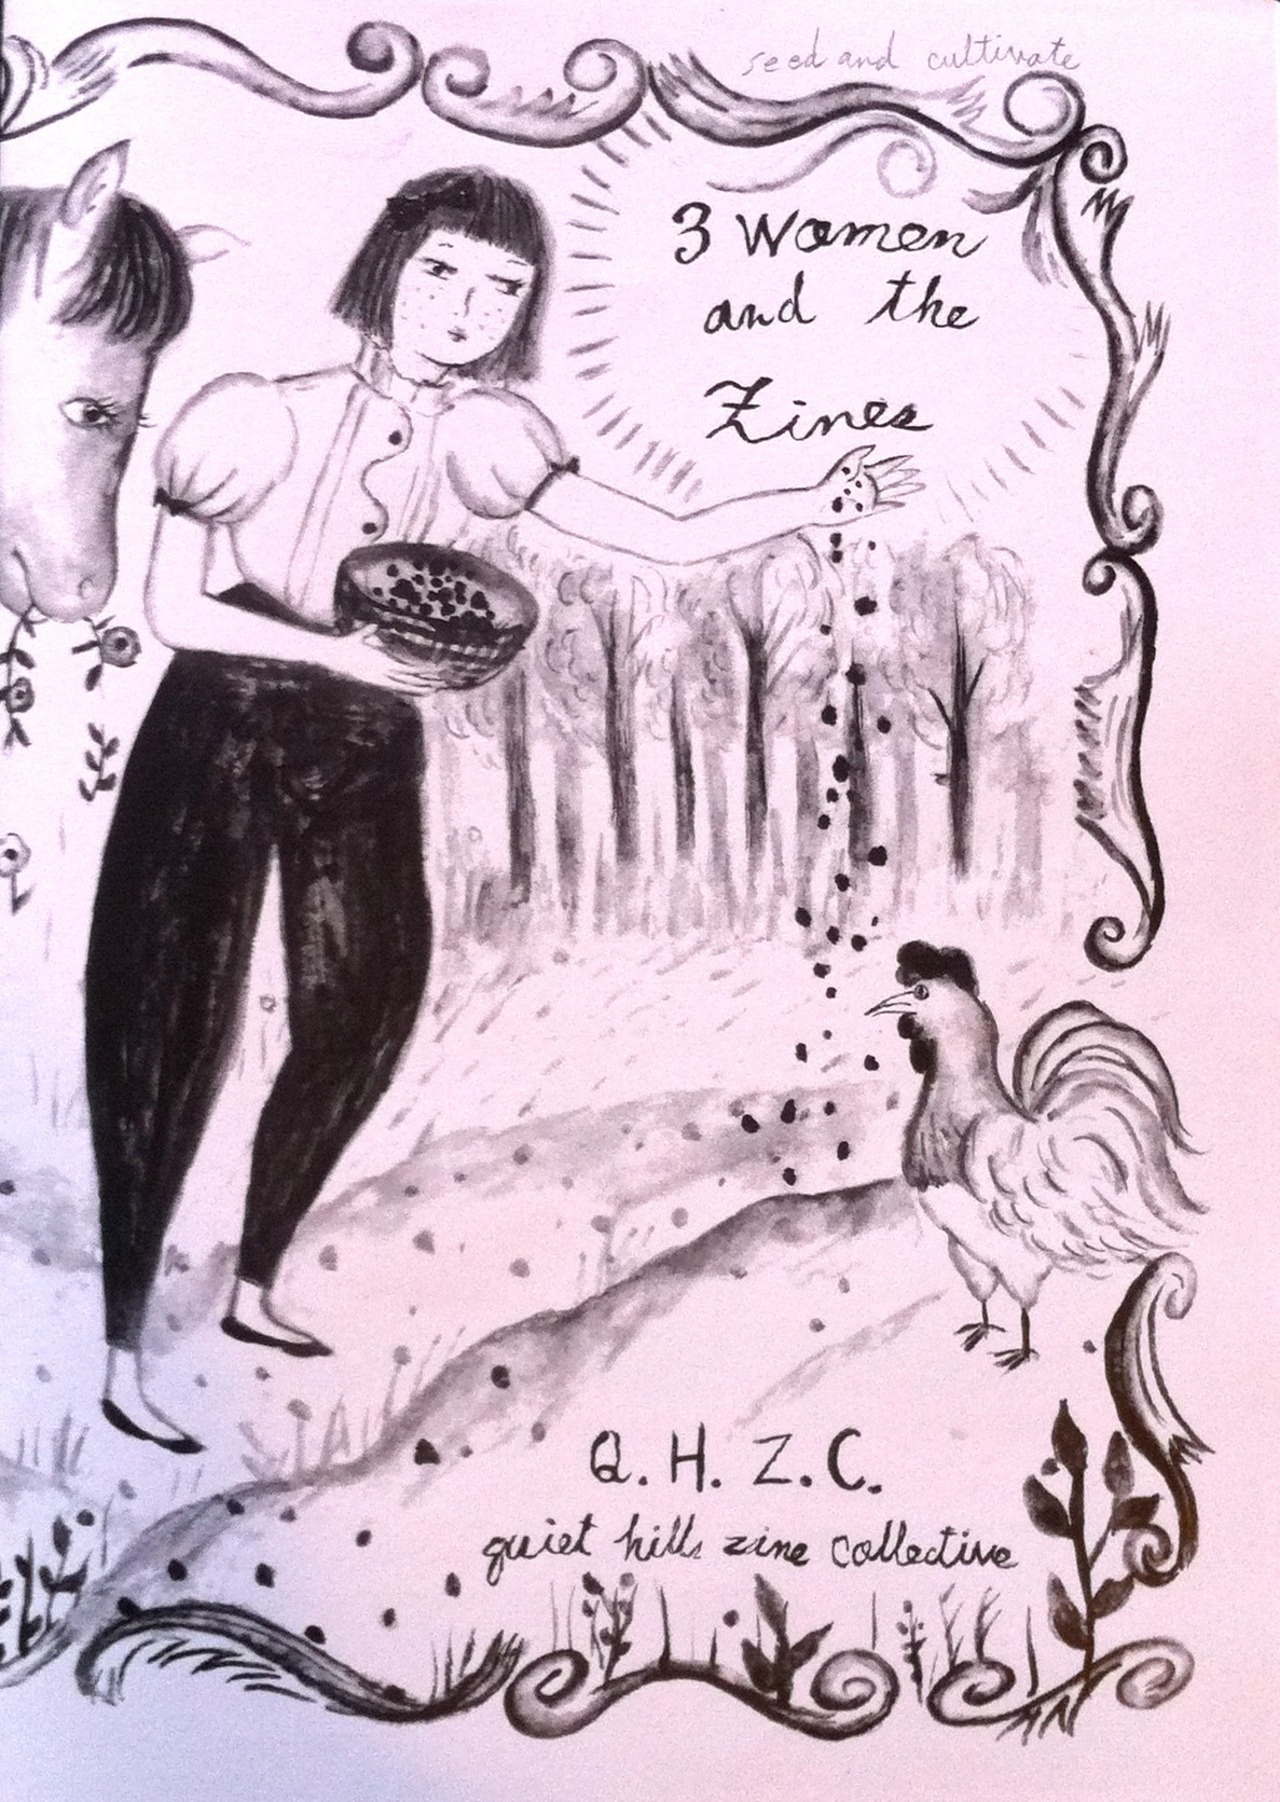 seed and cultivate
3 Women
and the
Zines
Q. H. Z. C.
quiet hills zine collective